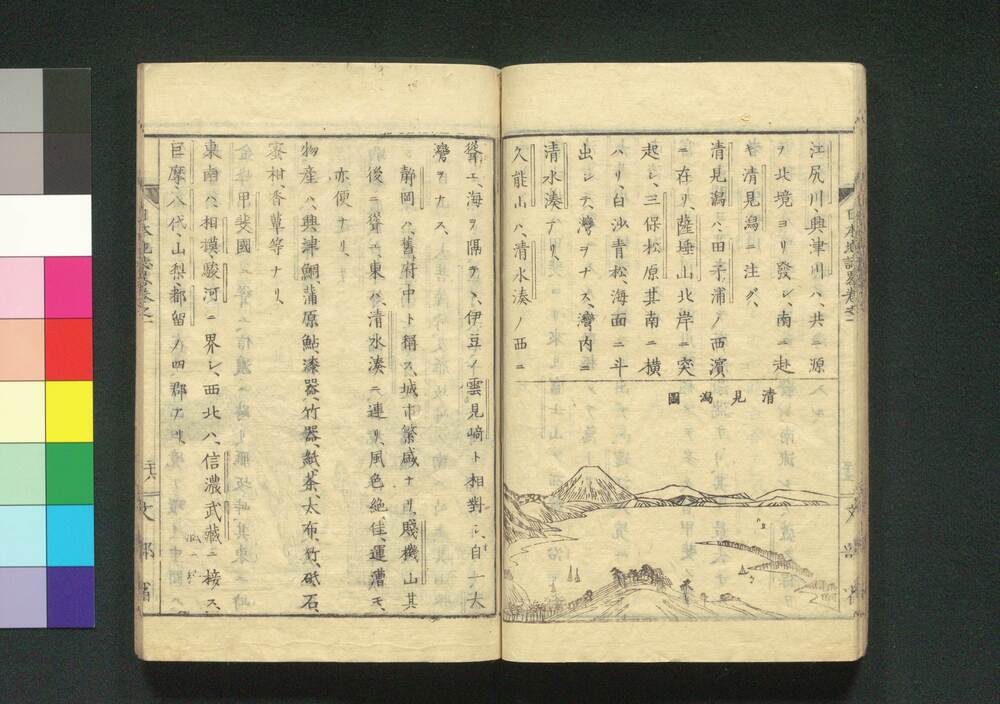 江尻川、興津川ハ、共ニ源
ヲ北境ヨリ發シ、南ニ赴
キ、清見潟ニ注グ、
清見潟ハ、田子ノ浦ノ西濱
ニ在リ、薩埵山北岸ニ突
起シ、三保松原其南ニ横
ハリ、白沙青松、海面ニ斗
出シテ、灣ヲナス、灣内ニ
清水湊アリ、
久能山ハ、清水湊ノ西ニ
清見潟圖
聳エ、海ヲ隔テヽ、伊豆ノ雲見崎ト相對シ、自一大
灣ヲナス、
静岡ハ、舊府中ト稱ス、城市繁盛ナリ、賤機山其
後ニ聳エ、東ハ清水湊ニ連リ、風色絶佳、運漕モ、
亦便ナリ、
物産ハ、興津鯛、蒲原鮎、漆器、竹器、紙、茶、太布、竹、砥石、
蜜柑、香蕈等ナリ、
甲斐國
東南ハ、相模、駿河ニ界シ、西北ハ、信濃、武藏ニ接ス、
巨摩、八代、山梨、都留ノ四郡アリ、
日本地誌略卷之二
文部省